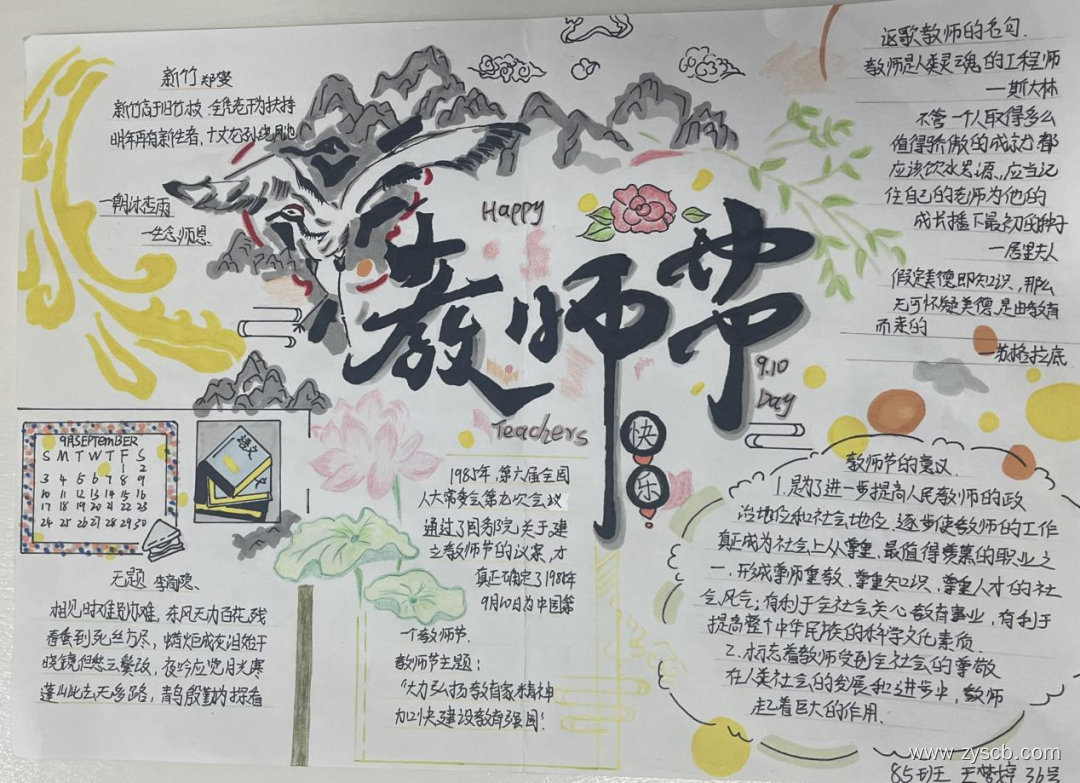 新竹 郑燮
新竹高于旧竹枝，全凭老干为扶持
明年再有新生者，十丈龙孙绕凤池
一朝沐杏雨
一生念师恩.
Happy
教师节
9.10
Day
Teachers
快
乐
讴歌教师的名句.
教师是人类灵魂的工程师
—斯大林
不管一个人取得多么
值得骄傲的成就,都
应该饮水思源,应当记
住自己的老师为他的
成长播下最初的种子
—居里夫人
假定美德即知识,那么
无可怀疑美德是由教育
而来的
—苏格拉底
9月SEPTEMBER
S M T W T F S
1 2
3 4 5 6 7 8 9
10 11 12 13 14 15 16
17 18 19 20 21 22 23
24 25 26 27 28 29 30
语文
无题 李商隐
相见时难别亦难，东风无力百花残
春蚕到死丝方尽，蜡炬成灰泪始干
晓镜但愁云鬓改，夜吟应觉月光寒
蓬山此去无多路，青鸟殷勤为探看
1985年,第六届全国
人大常委会第九次会议
通过了国务院关于建
立教师节的议案,才
真正确定了1985年
9月10日为中国第
一个教师节.
教师节主题：
“大力弘扬教育家精神
加快建设教育强国！
教师节的意义.
1.是为了进一步提高人民教师的政
治地位和社会地位.逐步使教师的工作
真正成为社会上从尊重、最值得羡慕的职业之
一.形成尊师重教、尊重知识、尊重人才的社
会风气；有利于全社会关心教育事业，有利于
提高整个中华民族的科学文化素质.
2.标志着教师受到全社会的尊敬
在人类社会的发展和进步中，教师
起着巨大的作用.
www.zyscb.com
85班 王梦婷 31号